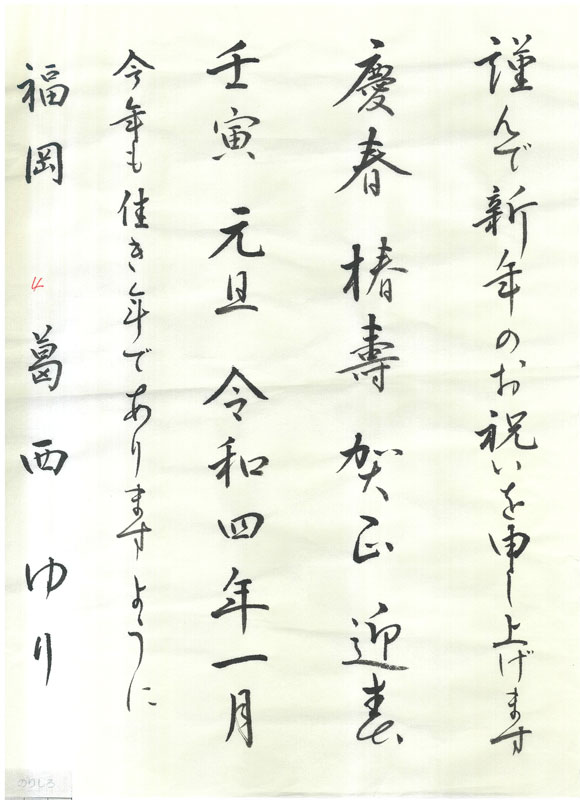 謹んで新年のお祝いを申し上げます
慶春 椿壽 賀正 迎春
壬寅 元旦 令和四年一月
今年も佳き年でありますように
福岡 4 葛西ゆり
のりしろ